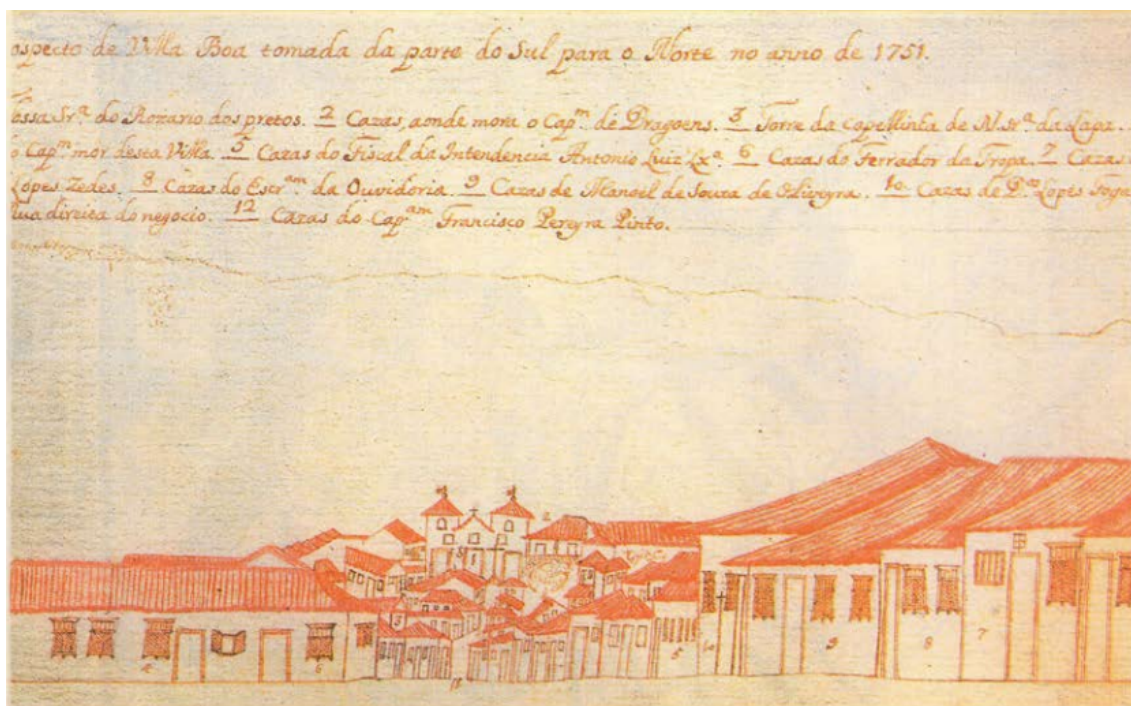 ospecto de Villa Boa tomada da parte do Sul para o Norte no anno de 1751.
ossa Srª. do Rozario dos pretos. 2 Cazas, aonde mora o Capᵐ. de Dragoens. 3 Torre da capellinha de N. Srª. da Lapa.
o Capᵐ. mór desta Villa. 5 Cazas do Fiscal da Intendencia Antonio Luiz Lxª. 6 Cazas do Ferrador da Tropa. 7 Cazas
Lopes Zedes. 8 Cazas do Escrᵃᵐ da Ouvidoria. 9 Cazas de Manoel de Souza de Oliveyra. 10 Cazas de Lopes
ua direita do negocio. 12 Cazas do Capᵃᵐ Francisco Pereyra Pinto.
2
3
4
6
5
10
9
8
7